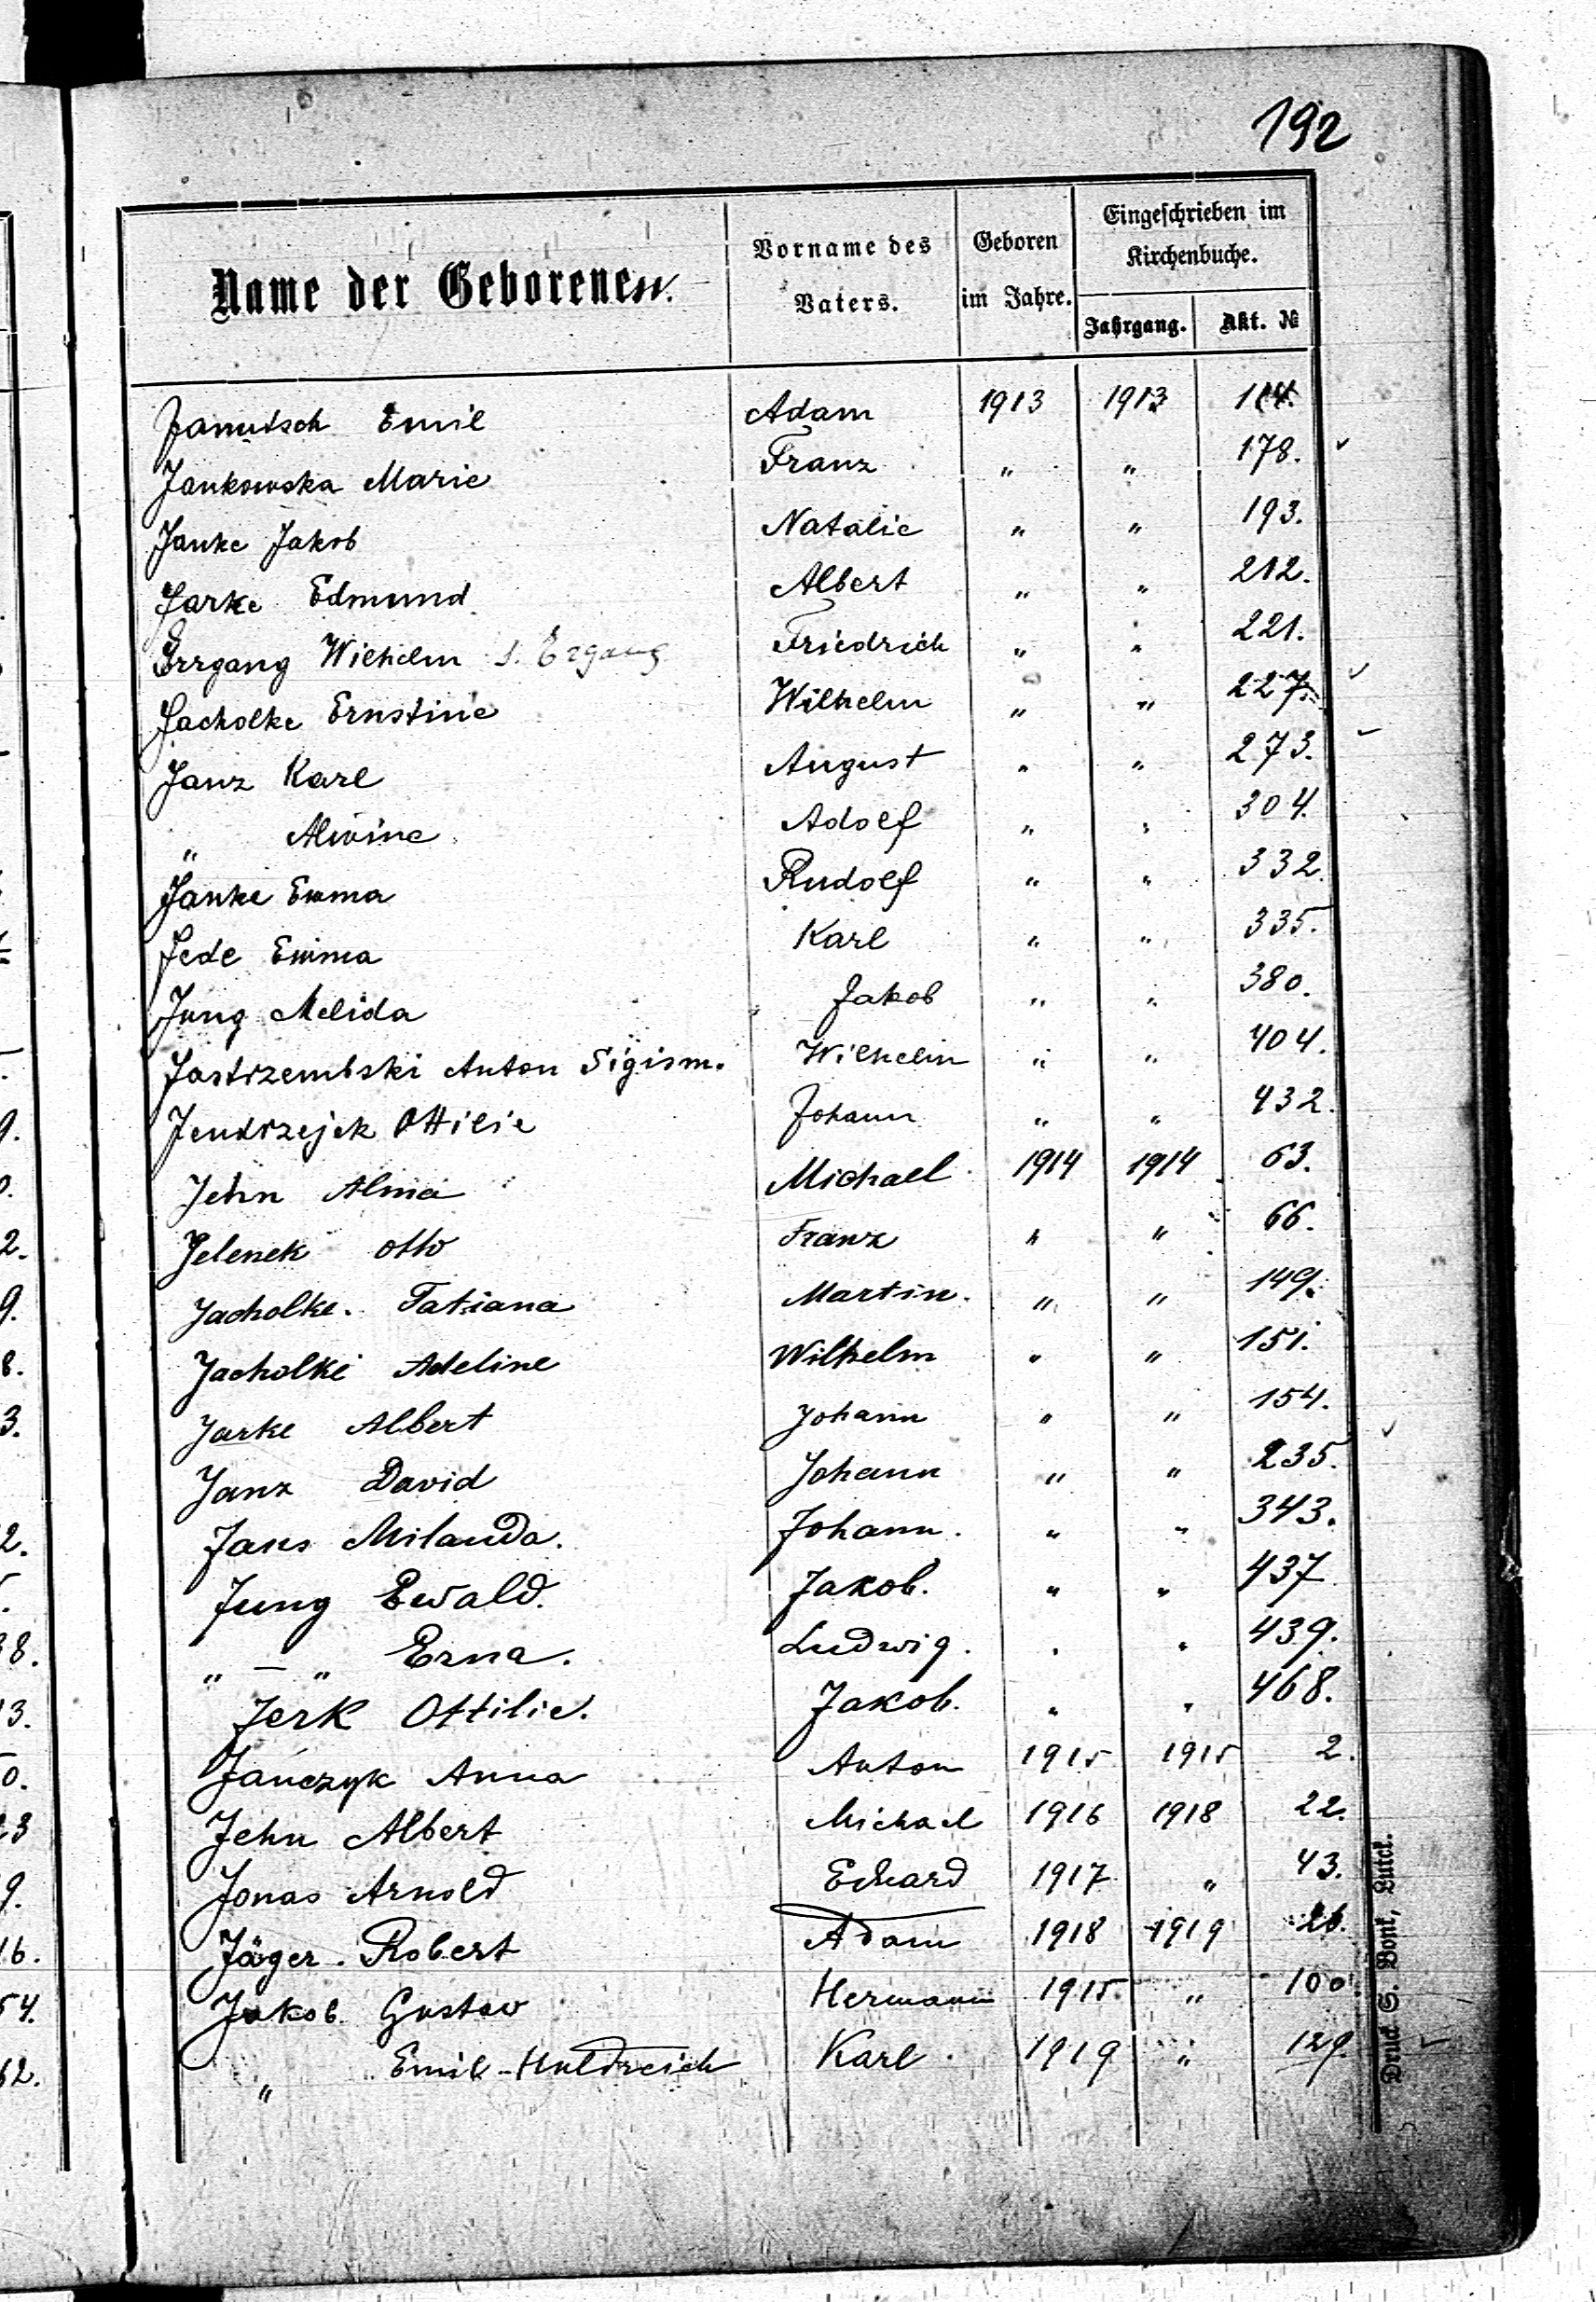 192
Name der Geborenen. Vorname des Vaters. Geboren im Jahre. Eingeschrieben im Kirchenbuche.
Jahrgang. Akt. №
Janutsch Emil Adam 1913 1913 114.
Jankowska Marie Franz " " 178. ✓
Janke Jakob Natalie " " 193.
Jarke Edmund Albert " " 212.
Irrgang Wilhelm s. Ergang Friedrich " " 221.
Jacholke Ernstine Wilhelm " " 227. ✓
Janz Karl August " " 273.
" Alwine Adolf " " 304.
Janke Emma Rudolf " " 332.
Jede Emma Karl " " 335.
Jung Melida Jakob " " 380.
Jastrzembski Anton Sigism. Wilhelm " " 404.
Jendrzejek Ottilie Johann " " 432.
Jehn Alma Michael 1914 1914 63.
Jelenek Otto Franz " " 66.
Jacholke. Tatiana Martin. " " 149.
Jacholke Adeline Wilhelm " " 151.
Jarke Albert Johann " " 154.
Janz David Johann " " 235. ✓
Jans Milanda. Johann. " " 343.
Jung Ewald. Jakob. " " 437
" — " Erna. Ludwig. " " 439.
Jerk Ottilie. Jakob. " " 468.
Jańczyk Anna Anton 1915 1915 2.
Jehn Albert Michael 1916 1918 22.
Jonas Arnold Eduard 1917 " 43.
Jäger. Robert Adam 1918 1919 26.
Jakob. Gustav Hermann 1915. " 100
" Emil-Huldreich Karl. 1919 " 129.
Druck S. Bonk, Luck.